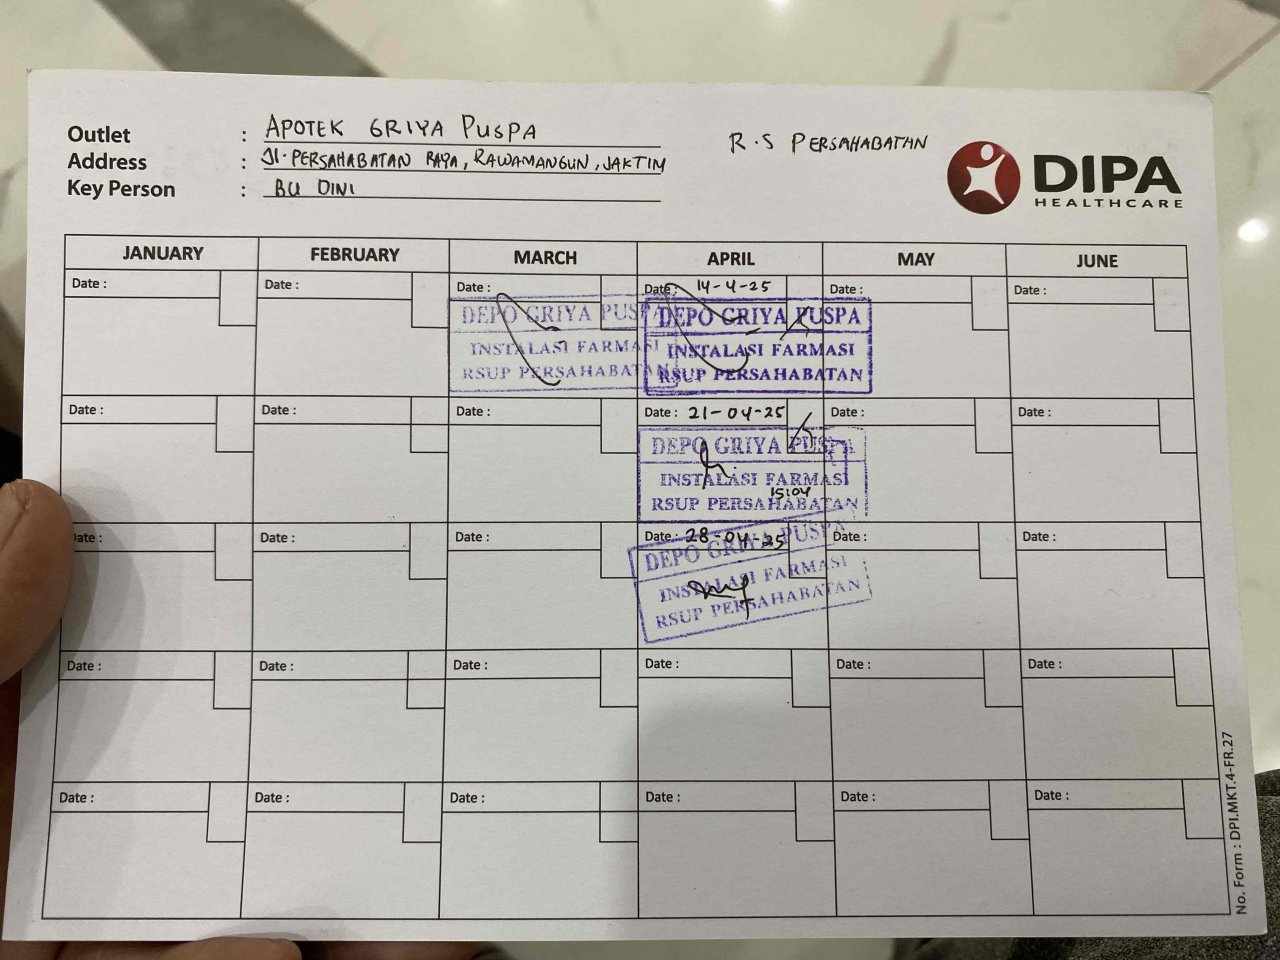 Outlet : APOTEK GRIYA PUSPA
R.S PERSAHABATAN
Address : Jl. PERSAHABATAN RAYA, RAWAMANGUN, JAKTIM
Key Person : BU DINI
DIPA
HEALTHCARE
JANUARY FEBRUARY MARCH APRIL MAY JUNE
Date : Date : Date : Date : 14-4-25 Date : Date :
DEPO GRIYA PUSPA DEPO GRIYA PUSPA
INSTALASI FARMASI INSTALASI FARMASI
RSUP PERSAHABATAN RSUP PERSAHABATAN
Date : Date : Date : Date : 21-04-25 Date : Date :
DEPO GRIYA PUSPA
INSTALASI FARMASI
15104
RSUP PERSAHABATAN
Date : Date : Date : Date : 28-04-25 Date : Date :
DEPO GRIYA PUSPA
INSTALASI FARMASI
RSUP PERSAHABATAN
Date : Date : Date : Date : Date : Date :
Date : Date : Date : Date : Date : Date :
No. Form : DPI.MKT.4-FR.27